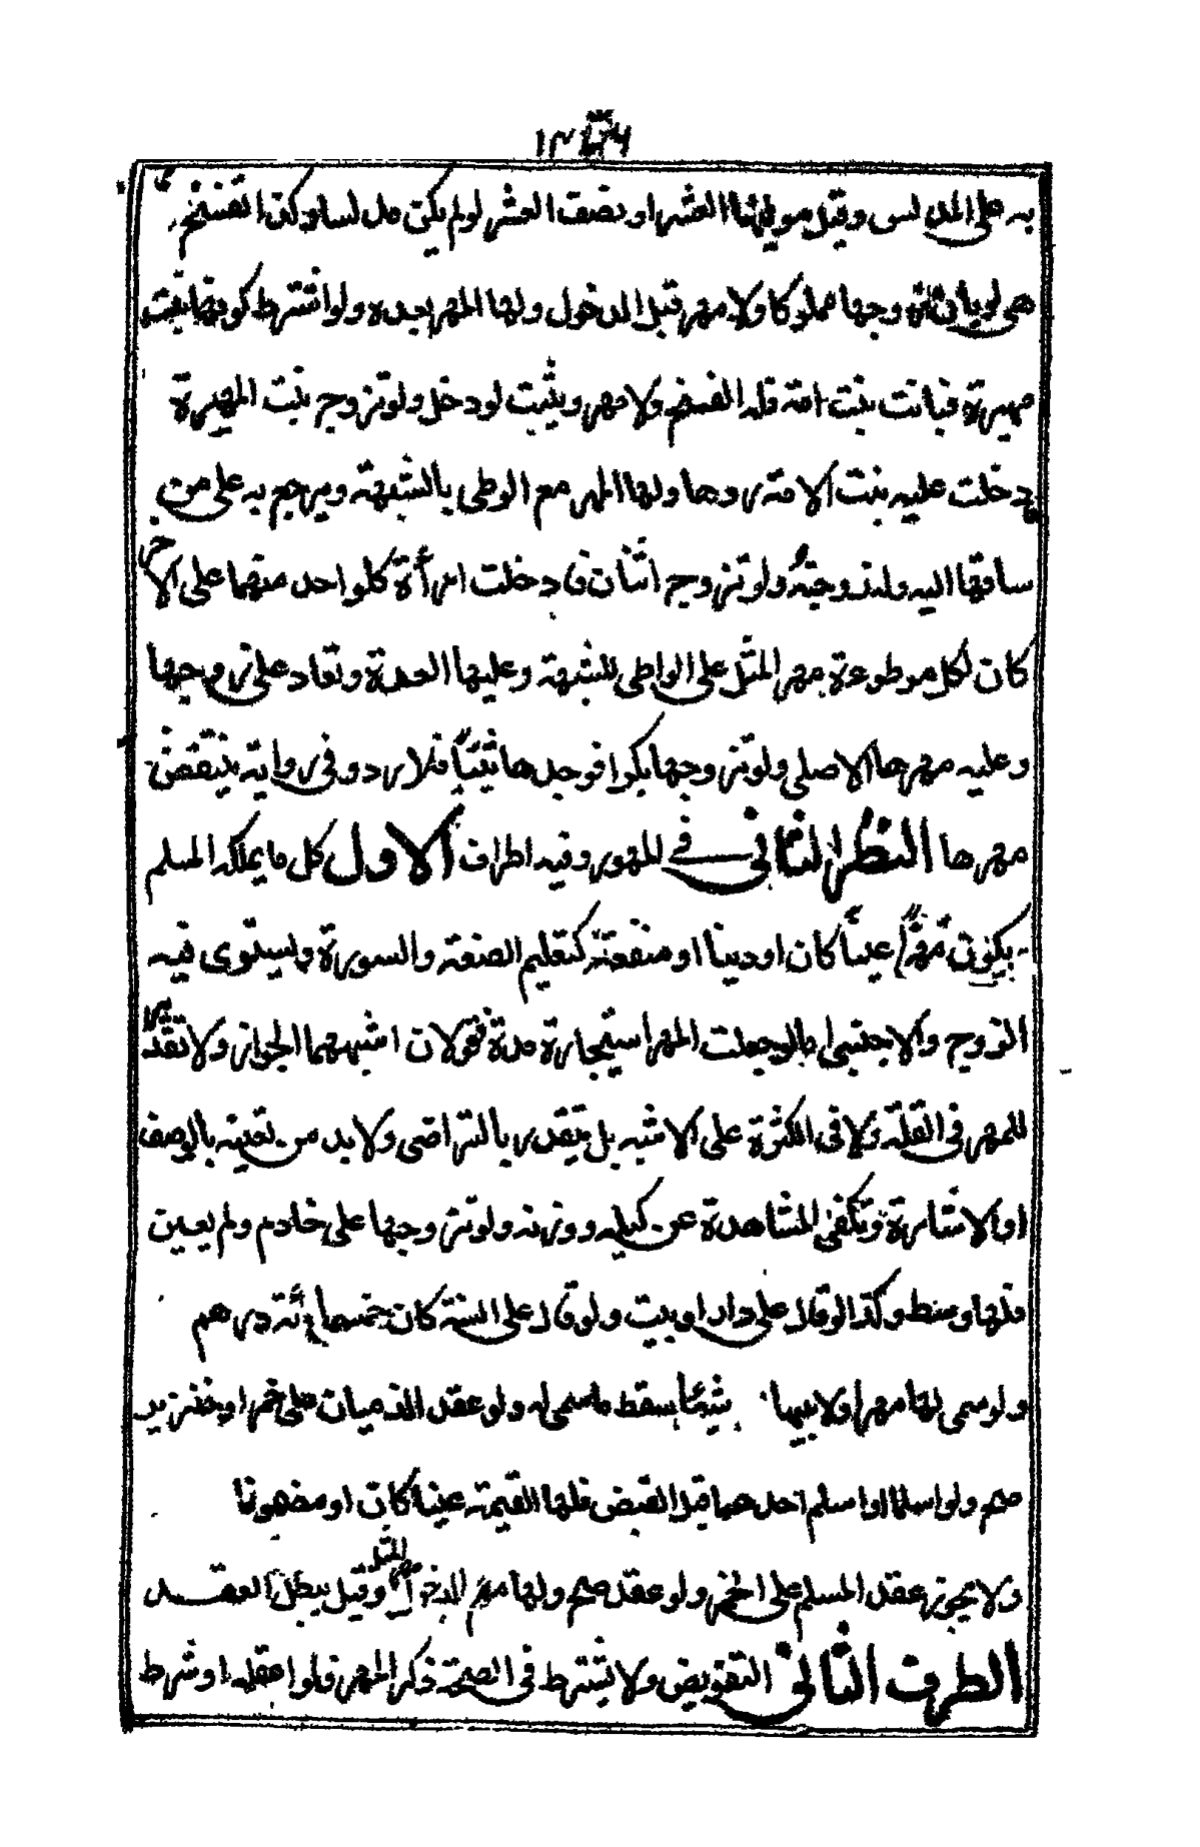 به على المدلس وقيل مولیها العشر او نصف العشر لو لم يكن مدلسا وكذا تفسخ
هى لو بان زوجها مملوكا ولا مهر قبل الدخول ولها المهر بعده ولو اشترط كونها بنت
مهيرة فبانت بنت امة فله الفسخ ولا مهر ويثبت لو دخل ولو تزوج بنت المهيرة
فادخلت عليه بنت الامة ردها ولها المهر مع الوطى بالشبهة ويرجع به على من
ساقها اليه وله زوجته ولو تزوج اثنان فادخلت امرأة كل واحد منهما على الاخر
كان لكل موطوءة مهر المثل على الواطى للشبهة وعليها العدة وتعاد على زوجها
وعليه مهرها الاصلى ولو تزوجها بكرا فوجدها ثيبًا فلا رد وفى رواية ينقص
مهرها النظر الثانى فى المهور وفيه اطراف الاول كل ما يملكه المسلم
يكون مهرًا عينًا كان او دينا او منفعة كتعليم الصنعة والسورة ويستوى فيه
الزوج والاجنبى اما لو جعلت المهر استيجاره مدة فقولان اشبههما الجواز ولا تقدير
للمهر فى القلة ولا فى الكثرة على الاشبه بل يتقدر بالتراضى ولا بد من تعيينه بالوصف
او الاشارة وتكفى المشاهدة عن كيله ووزنه ولو تزوجها على خادم ولم يعين
فلها وسط وكذا لو قال على دار او بيت ولو قال على السنة كان خمسمائة درهم
ولو سمى لها مهرا ولابيها شيئا سقط ما سمى له ولو عقد الذميان على خمر او خنزير
صح ولو اسلما او اسلم احدهما قبل القبض فلها القيمة عينا كان او مضمونا
ولا يجوز عقد المسلم على الخمر ولو عقد صح ولها مع الدخول مهر المثل وقيل يبطل العقد
الطرف الثانى التفويض ولا يشترط فى الصحة ذكر المهر فلو اغفله او شرط